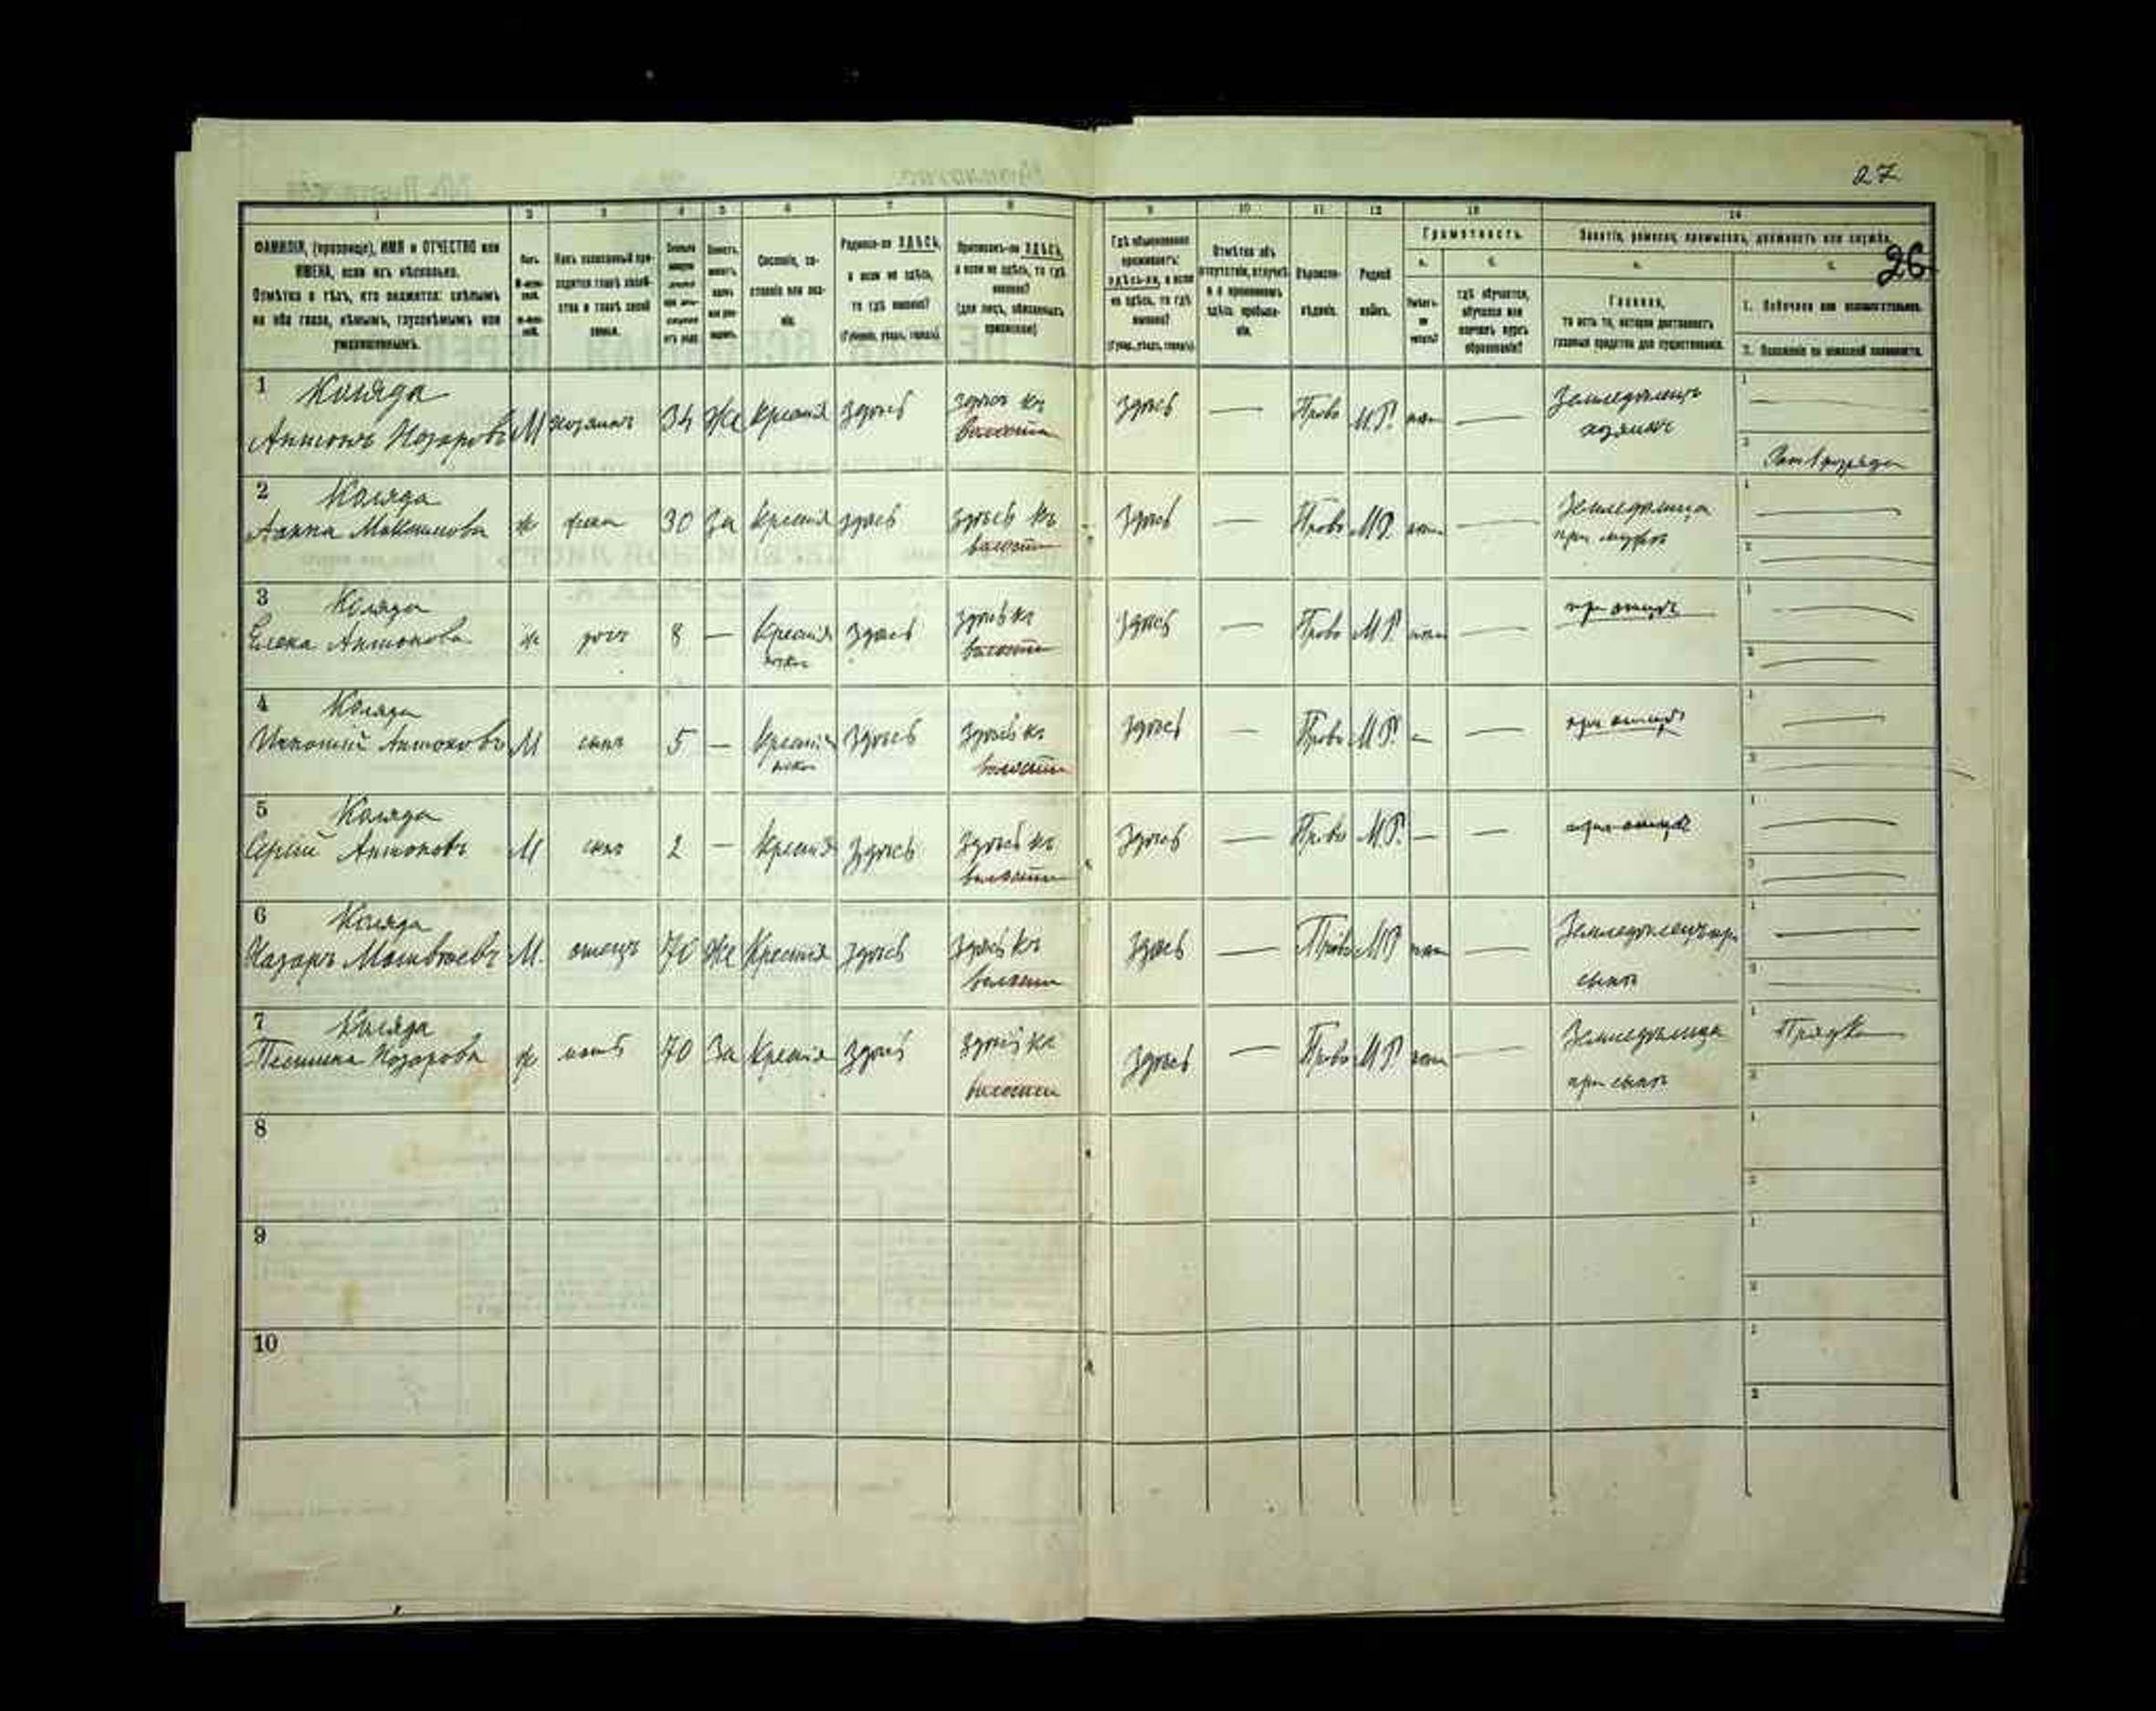 27
26
1 2 3 4 5 6 7 8 9 10 11 12 13 14
ФАМИЛІЯ, (прозвище), ИМЯ и ОТЧЕСТВО или
ИМЕНА, если ихъ нѣсколько.
Отмѣтка о тѣхъ, кто окажется: слѣпымъ
на оба глаза, нѣмымъ, глухонѣмымъ или
умалишеннымъ.
Полъ.
Какъ записанный при-
ходится главѣ хозяй-
ства и главѣ своей
семьи.
Сословіе, со-
стояніе или зва-
ніе.
Родился-ли ЗДѢСЬ,
а если не здѣсь,
то гдѣ именно?
(Губернія, уѣздъ, городъ).
Приписанъ-ли ЗДѢСЬ,
а если не здѣсь, то гдѣ
именно?
(для лицъ, обязанныхъ
припискою)
Гдѣ обыкновенно
проживаетъ:
здѣсь-ли, а если
не здѣсь, то гдѣ
именно?
(Губер., уѣздъ, городъ).
Отмѣтка объ
отсутствіи, отлучкѣ
и о временномъ
здѣсь пребыва-
ніи.
Вѣроиспо-
вѣданіе.
Родной
языкъ.
Грамотность.
а. б.
Умѣетъ-
ли
читать?
гдѣ обучается,
обучался или
кончилъ курсъ
образованія?
Занятіе, ремесло, промыселъ, должность или служба.
а. б.
Главное,
то есть то, которое доставляетъ
главныя средства для существованія.
1. Побочное или вспомогательное.
2. Положеніе по воинской повинности.
1 Коляда
Антонъ Назаровъ М хозяинъ 34 Же Крестія здѣсь здѣсь къ волости здѣсь — Право М.Р. нѣтъ — Земледѣлецъ хозяинъ
2 Коляда
Максимова ж жена 30 За Крестія здѣсь здѣсь къ волости здѣсь — Право М.Р. нѣтъ — Земледѣлица при мужѣ
3 Коляда
Елена Антонова ж дочь 8 — Крестія здѣсь здѣсь къ волости здѣсь — Право М.Р. нѣтъ — при отцѣ
4 Коляда
Антоновъ М сынъ 5 — Крестія здѣсь здѣсь къ волости здѣсь — Право М.Р. — — при отцѣ
5 Коляда
Сергій Антоновъ М сынъ 2 — Крестія здѣсь здѣсь къ волости здѣсь — Право М.Р. — — при отцѣ
6 Коляда
Назаръ Матвѣевъ М. отецъ 70 Же Крестія здѣсь здѣсь къ волости здѣсь — Право М.Р. нѣтъ — Земледѣлецъ при сынѣ
7 Коляда
Назарова ж мать 70 За Крестія здѣсь здѣсь къ волости здѣсь — Право М.Р. нѣтъ — Земледѣлица при сынѣ Пряжа
8
9
10